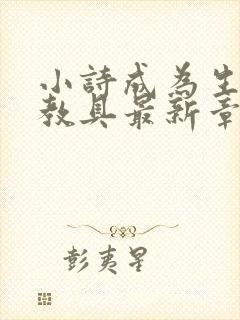 小詩成為生
教具最新章
彭夷星